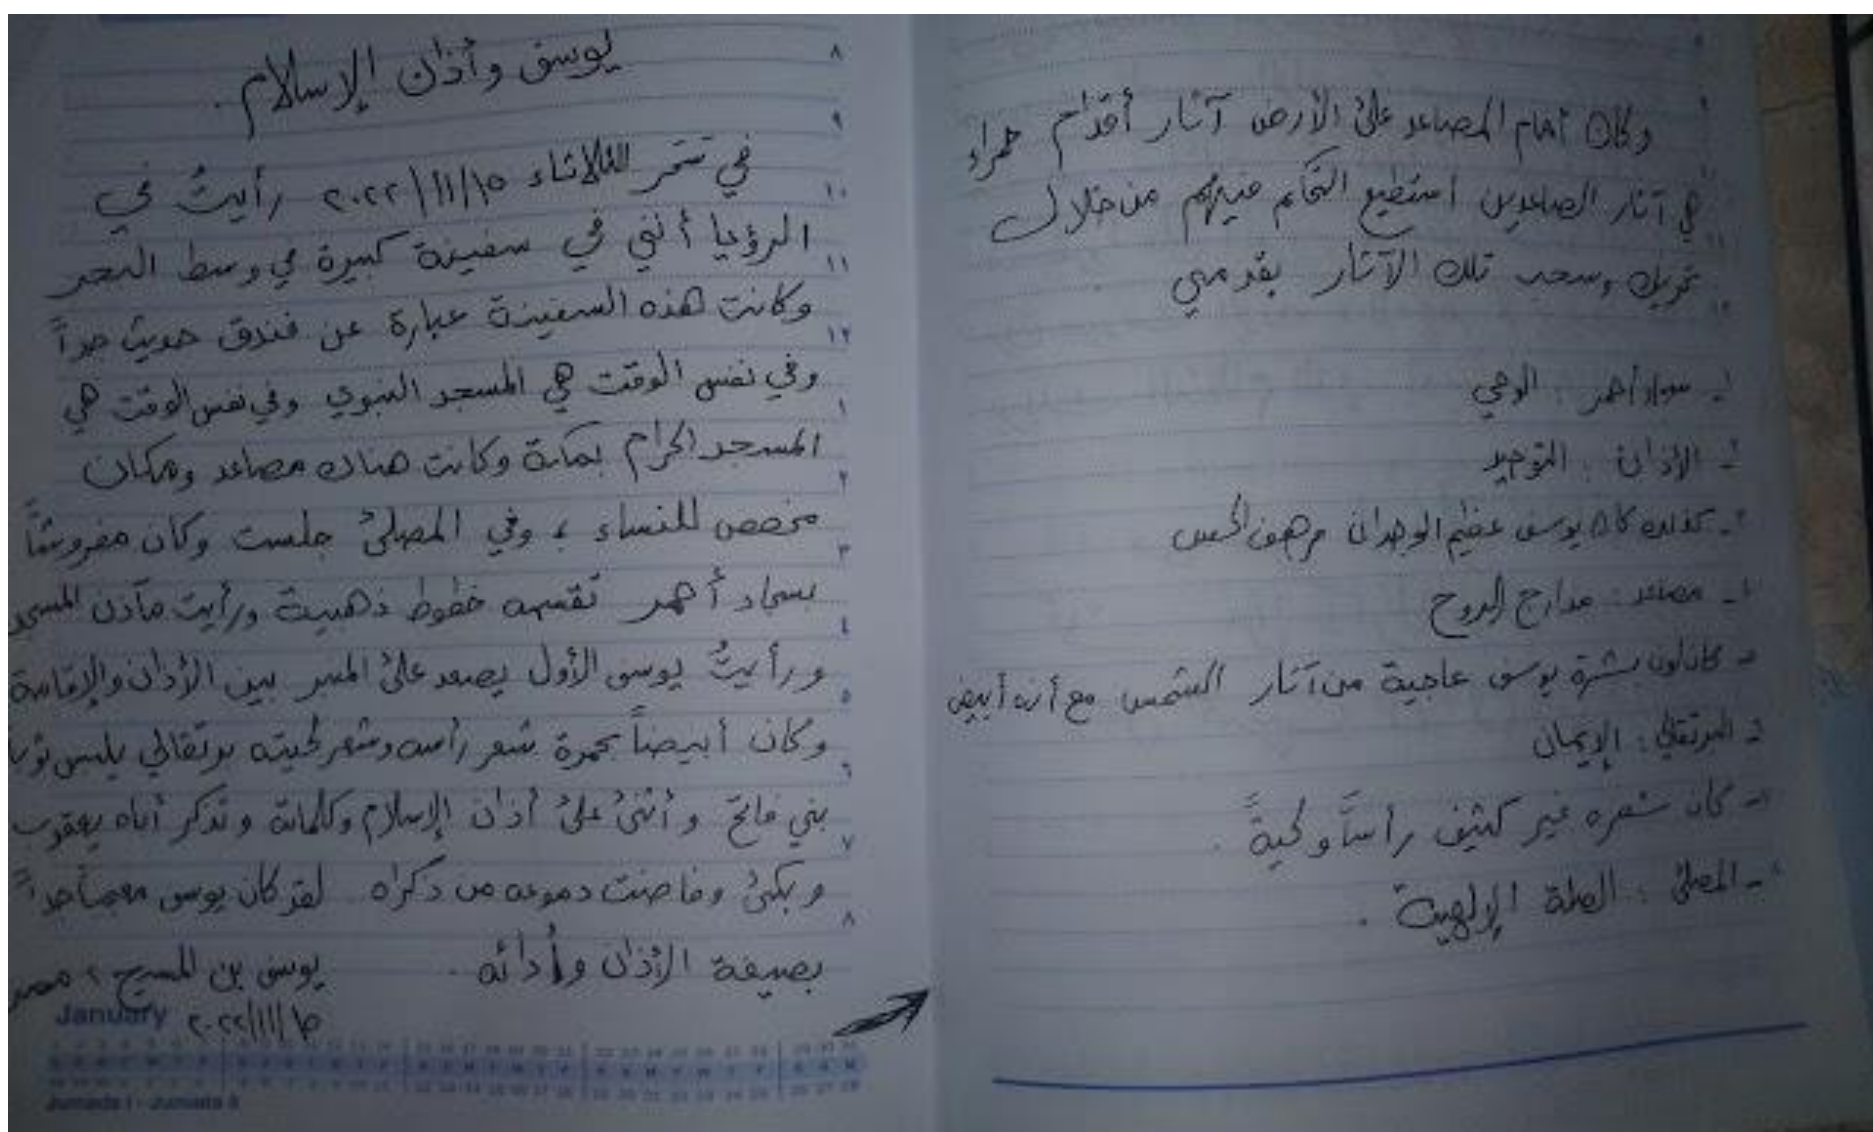 يوسف وأذان الإسلام .
في سحر الثلاثاء ٢٠٢٢/١١/١٥ رأيتُ في
الرؤيا أنني في سفينة كبيرة في وسط البحر
وكانت هذه السفينة عبارة عن فندق حديث جداً
وفي نفس الوقت هي المسجد النبوي وفي نفس الوقت هي
المسجد الحرام بمكة وكانت هناك مصاعد ومكان
مخصص للنساء ، وفي المصلىٰ جلست وكان مفروشاً
بسجاد أحمر تقسمه خطوط ذهبية ورأيت مآذن المسجد
ورأيتُ يوسف الأول يصعد علىٰ المنبر بين الأذان والإقامة
وكان أبيضاً بحمرة شعر رأسه وشعر لحيته برتقالي يلبس ثوباً
بني فاتح وأثنىٰ علىٰ أذان الإسلام وكلماته وتذكر أباه يعقوب
وبكىٰ وفاضت دموعه من ذكراه . لقد كان يوسف معجباً جداً
بصيغة الأذان وأدائه . يوسف بن المسيح ، مصر
٢٠٢٢/١١/١٥
January
Jumada I - Jumada II
وكان أمام المصاعد علىٰ الأرض آثار أقدام حمراء
هي آثار الصاعدين أستطيع التحكم فيهم من خلال
تحريك وسحب تلك الآثار بقدمي
- سجاد أحمر : الوحي
- الأذان : التوحيد
- كذلك كان يوسف عظيم الوجدان مرهف الحس
- مصاعد : مدارج الروح
- كان لون بشرة يوسف عاجية من آثار الشمس مع أنه أبيض
- البرتقالي : الإيمان
- كان شعره غير كثيف رأساً ولحيةً .
- المصلىٰ : الصلة الإلهية .